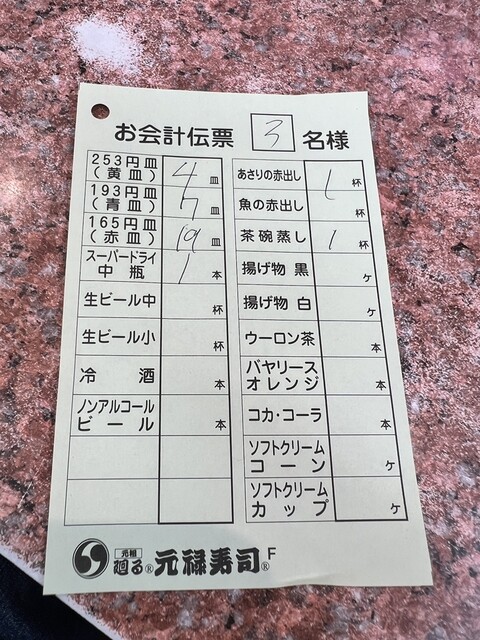 お会計伝票 3 名様
253円皿
(黄皿) 4 皿
193円皿
(青皿) 7 皿
165円皿
(赤皿) 19 皿
スーパードライ
中瓶 1 本
生ビール中 杯
生ビール小 杯
冷酒 本
ノンアルコール
ビール 本
あさりの赤出し 1 杯
魚の赤出し 杯
茶碗蒸し 1 杯
揚げ物 黒 ケ
揚げ物 白 ケ
ウーロン茶 本
バヤリース
オレンジ 本
コカ・コーラ 本
ソフトクリーム
コーン ケ
ソフトクリーム
カップ ケ
元祖
廻る® 元禄寿司® F